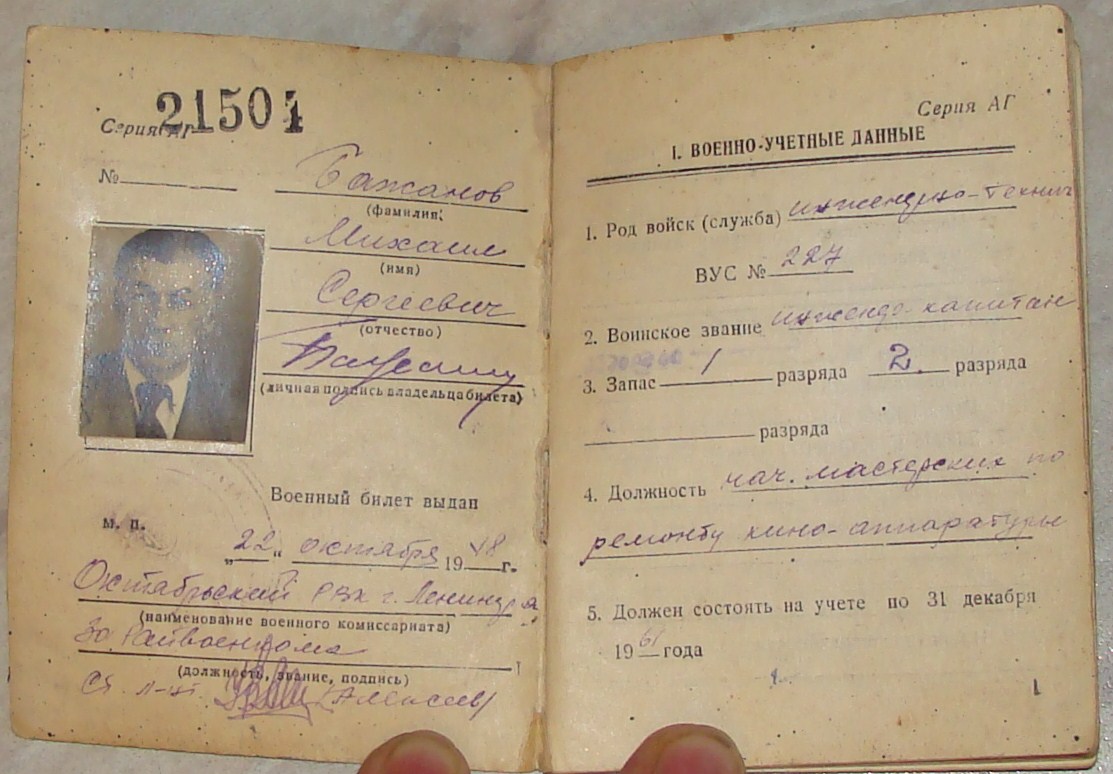 21504
Серия АГ
№
Бажанов
(фамилия)
Михаил
(имя)
Сергеевич
(отчество)
(личная подпись владельца билета)
Военный билет выдан
м. п.
„22“ октября 1948 г.
Октябрьский РВК г. Ленинграда
(наименование военного комиссариата)
За Райвоенкома
(должность, звание, подпись)
Ст. л-нт. (Алексеев)
Серия АГ
I. ВОЕННО-УЧЕТНЫЕ ДАННЫЕ
1. Род войск (служба) инженерно-технич
ВУС № 227
2. Воинское звание инженер-капитан
3. Запас 1 разряда 2. разряда
разряда
4. Должность нач. мастерских по
ремонту кино-аппаратуры
5. Должен состоять на учете по 31 декабря
1961 года
1